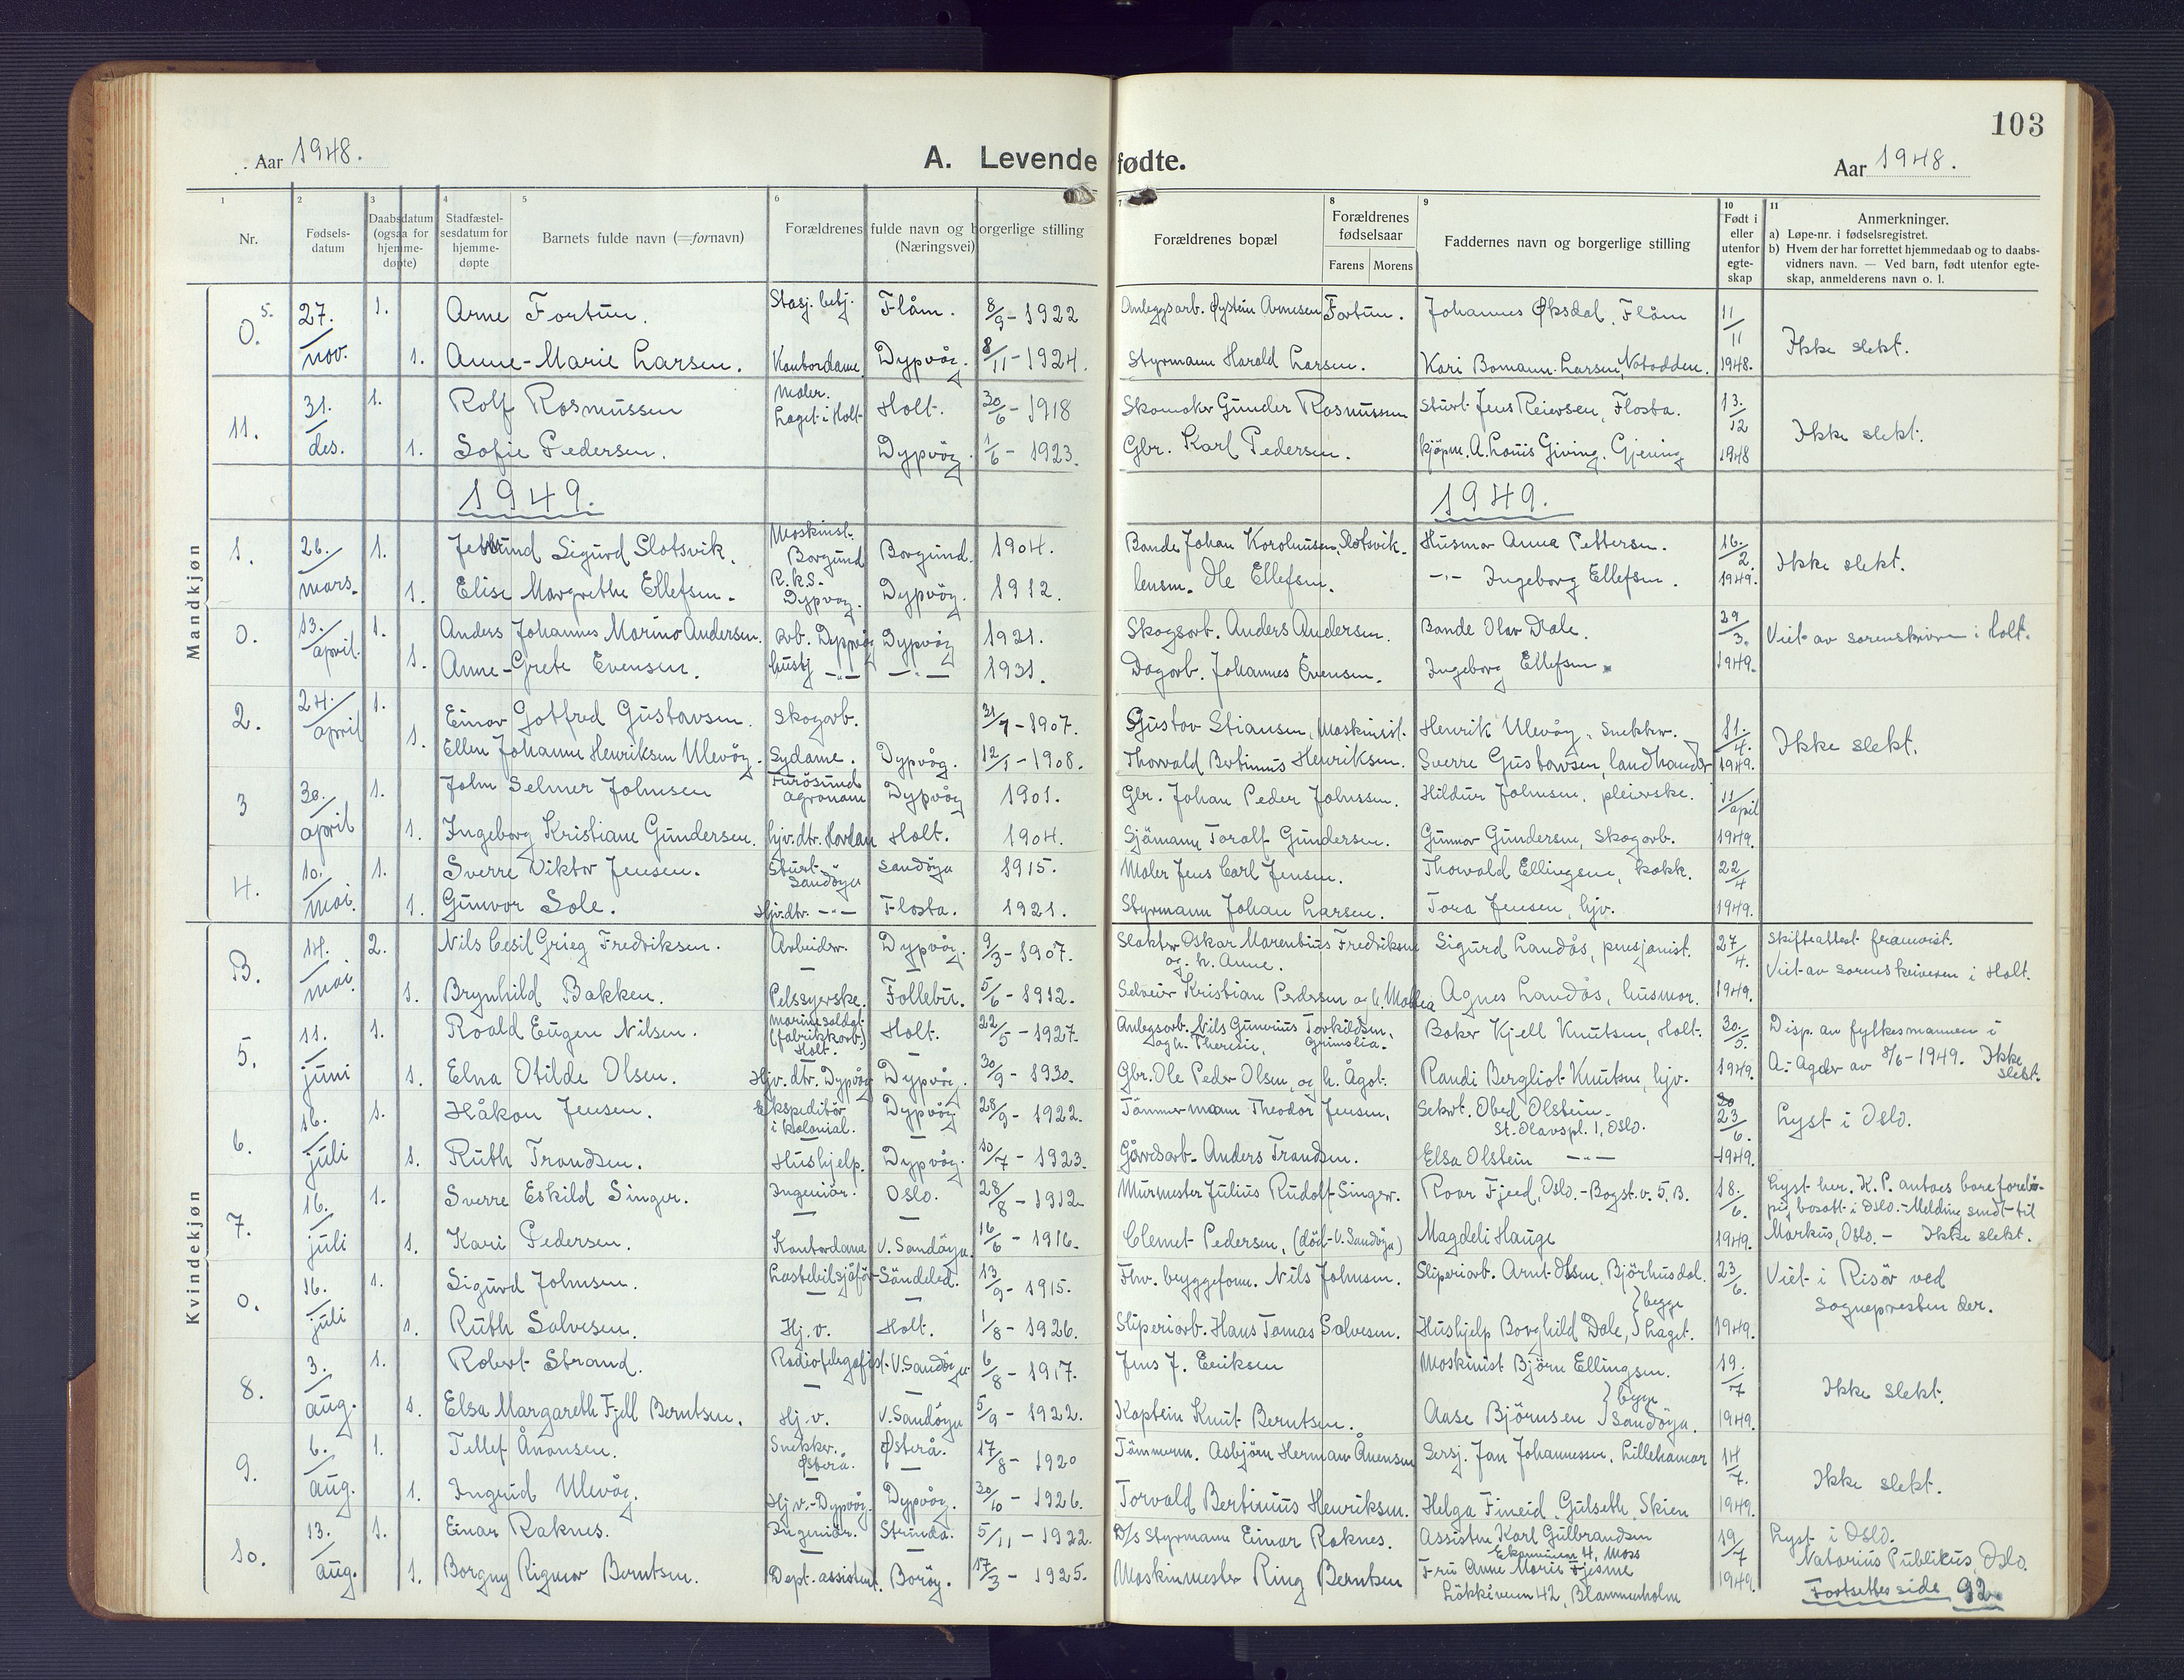 103
Aar 1948.
A. Levende fødte.
Aar 1948.
1 2 3 4 5 6 7 8 9 10 11
Nr.
Fødsels-
datum
Daabsdatum
(ogsaa for
hjemme-
døpte)
Stadfæstel-
sesdatum for
hjemme-
døpte
Barnets fulde navn (=fornavn)
Forældrenes fulde navn og borgerlige stilling
(Næringsvei)
Forældrenes bopæl
Forældrenes
fødselsaar
Farens Morens
Faddernes navn og borgerlige stilling
Født i
eller
utenfor
egte-
skap
Anmerkninger.
a) Løpe-nr. i fødselsregistret.
b) Hvem der har forrettet hjemmedaab og to daabs-
vidners navn. — Ved barn, født utenfor egte-
skap, anmelderens navn o. l.
Mandkjøn
0. 5. 27. nov. 1. Arne Fortun. Stasj. betj. Flåm. 8/9 - 1922 Anleggsarb. Øystein Arnesen Fortun. Johannes Øksdal, Flåm 11/11
1. Anne-Marie Larsen. Kontordame. Dypvåg. 8/11 - 1924. Styrmann Harald Larsen. Kari Bomann-Larsen, Notodden. 1948. Ikke slekt.
11. 31. des. 1. Rolf Rasmussen Maler. Laget i Holt Holt. 30/6 - 1918 Skomaker Gunder Rasmussen Stuert Jens Reiersen, Flosta. 13./12
1. Sofie Pedersen. Dypvåg. 1/6 - 1923. Gbr. Karl Pedersen. kjøpm. A. Louis Giving, Gjeving 1948 Ikke slekt.
1949. 1949.
1. 26. mars. 1. Sigurd Slotsvik. Maskinist. Borgund Borgund. 1904. Bonde Johan Karolusen, Slotsvik. Husmor Anna Pettersen. 16./2.
1. Elise Margrethe Ellefsen. R.k.s. Dypvåg. Dypvåg. 1912. lensm. Ole Ellefsen. -"- Ingeborg Ellefsen. 1949. Ikke slekt.
0. 13. april. 1. Anders Johannes Marino Andersen. arb. Dypvåg Dypvåg 1921. Skogsarb. Anders Andersen. Bonde Olav Dale. 29/3. Viet av sorenskriveren i Holt.
1. Anne-Grete Evensen. hustj. -"- -"- 1931. Dagarb. Johannes Evensen. Ingeborg Ellefsen. 1949.
2. 24. april 1. Einar Gotfred Gustavsen. Skogarb. 31/7 - 1907. Gustav Stiansen, Maskinist. Henrik Ulevåg, snekker. 11./4.
1. Ellen Johanne Henriksen Ulevåg. Sydame. Dypvåg. 12/1 - 1908. Thorvald Bertinius Henriksen. Sverre Gustavsen, landhandler 1949. Ikke slekt.
3 30. april 1. John Selmer Johnsen Furøsund agronom Dypvåg 1901. Gbr. Johan Peder Johnssen. Hildur Johnsen, pleierske. 11/april
1. Ingeborg Kristiane Gundersen. hjv. dtr. Hovdan Holt. 1904. Sjømann Toralf Gundersen. Gunnar Gundersen, Skogarb. 1949.
4. 10. mai. 1. Sverre Viktor Jensen. Stuert Sandøya Sandøya 1915. Maler Jens Carl Jensen. Thorvald Ellingsen, kokk. 22/4
1. Gunvor Sole. Hjv. dtr. -"- Flosta. 1921. Styrmann Johan Larsen. Tora Jensen, hjv. 1949.
Kvindekjøn
B. 14. mai 2. Nils Cesil Grieg Fredriksen. Arbeider. Dypvåg. 9/3 - 1907. Slakter Oskar Marentius Fredriksen og h. Anne. Sigurd Landås, pensjonist. 27/4. Skifteattest framvist.
1. Brynhild Bakken. Pelssyerske. Follebu. 5/6 - 1912. Selveier Kristian Pedersen og h. Mathea Agnes Landås, husmor. 1949. Viet av sorenskriveren i Holt.
5. 11. juni 1. Roald Eugen Nilsen. Marinesoldat (fabrikkarb.) Holt. Holt. 22/5 - 1927. Anlegsarb. Nils Gunerius Torkildsen, og h. Theresie, Grimslia. Baker Kjell Knutsen, Holt. 30./5. Disp. av fylkesmannen i
1. Elna Otilde Olsen. Hjv. dtr. Dypvåg Dypvåg. 30/9 - 1930. Gbr. Ole Peder Olsen, og h. Ågot. Randi Bergliot Knutsen, hjv. 1949. A.-Agder av 8/6 - 1949. Ikke slekt.
6. 16. juli 1. Håkon Jensen. Ekspeditør i kolonial. Dypvåg 28/9 - 1922. Tømmermann Theodor Jensen. Sekret. Obed Olstein St. Olavspl. 1, Oslo. 23/6.
1. Ruth Trondsen. Hushjelp. Dypvåg. 10/7 - 1923. Gårdsarb. Anders Trondsen. Elsa Olstein -"- 1949. Lyst i Oslo.
7. 16. juli 1. Sverre Eskild Singer. Ingeniør. Oslo. 28/8 - 1912. Murmester Julius Rudolf Singer. Roar Fjeed, Oslo. - Bogst.v. 5, B. 18./6. Lyst her. K.P. antaes bare foreløpig bosatt i Oslo. - Melding sendt til
1. Kari Pedersen. Kontordame V. Sandøya. 16/6 - 1916. Clemet Pedersen, (død - V. Sandøya) Magdeli Hauge 1949. Markus, Oslo. - Ikke slekt.
0. 16. juli 1. Sigurd Johnsen. Lastebilsjåfør Søndeled. 13/9 - 1915. Fhv. bryggeform. Nils Johnsen. Sliperiarb. Arnt Olsen, Bjørhusdal. 23/6. Viet i Risør ved
1. Ruth Salvesen. Hj. v. Holt. 1/8 - 1926. Sliperiarb. Hans Tomas Salvesen. Hushjelp Borghild Dale, } begge Laget. 1949. Sognepresten der.
8. 3. aug. 1. Robert Strand. Radiotelegrafist. V. Sandøya 6/8 - 1917. Jens J. Eriksen Maskinist Bjørn Ellingsen. 19./7
1. Elsa Margareth Fjell Berntsen. Hj. v. V. Sandøya 5/9 - 1922. Kaptein Knut Berntsen. Aase Bjørnsen } begge Sandøya. 1949. Ikke slekt.
9. 6. aug. 1. Tellef Ånonsen. Snekker. Østerå. Østerå. 17/8 - 1920 Tømmerm. Asbjørn Herman Ånensen Sersj. Jan Johannessen, Lillehamar 14/7.
1. Ingrid Ulevåg. Hj. v. - Dypvåg. Dypvåg. 30/10 - 1926. Torvald Bertinius Henriksen. Helga Fineid, Gulseth, Skien 1949. Ikke slekt.
10. 13. aug. 1. Einar Raknes. Ingeniør. Strinda. 5/11 - 1922. D/s Styrmann Einar Raknes. Assistent Karl Gulbrandsen 4, Moss 19/7 Lyst i Oslo.
1. Borgny Rigmor Berntsen. Dept. assistent. Borøy. 17/3 - 1925. Maskinmester Ring Berntsen Fru Anne Marie Fjesme Løkkeveien 42, Blommenholm 1949. Notarius Publikus, Oslo.
Fortsettes side 92.